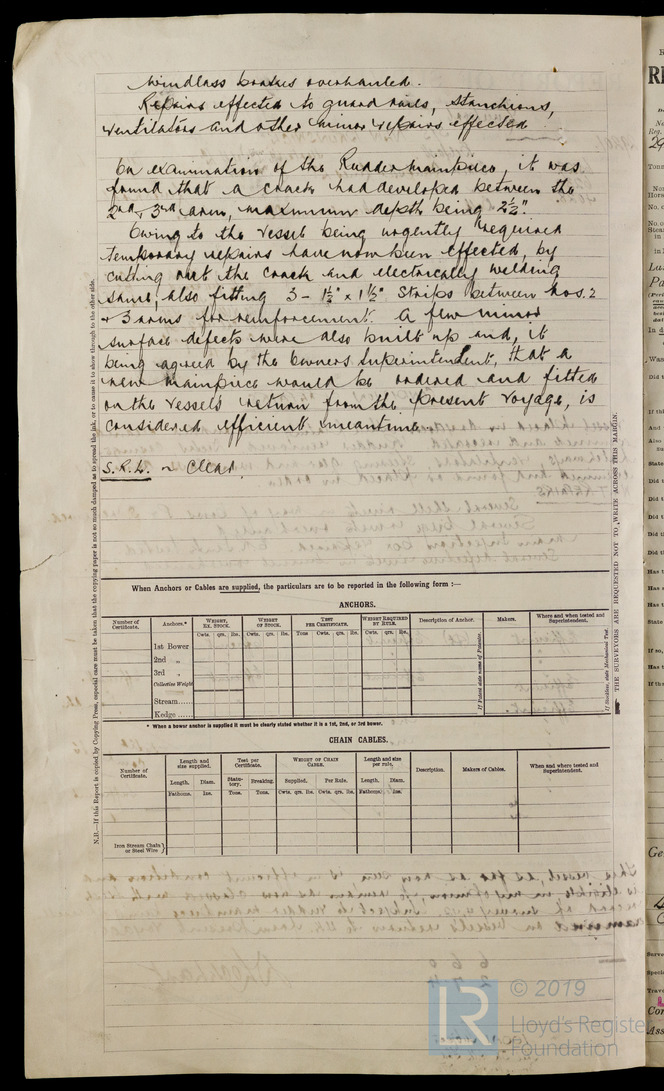 Windlass brakes overhauled.
Repairs effected to guard rails, stanchions,
ventilators and other minor repairs effected
On examination of the Rudder mainpiece, it was
found that a crack had developed between the
2nd & 3rd arm, maximum depth being 2½".
Owing to the vessel being urgently required
temporary repairs have now been effected, by
cutting out the crack and electrically welding
same, also fitting 3 - 1½" x 1½" strips between nos. 2
& 3 arms for reinforcement. A few minor
surface defects were also built up and, it
being agreed by the Owners Superintendent, that a
new mainpiece would be ordered and fitted
on the vessels return from the present voyage, is
considered efficient meantime.
S.R.L. ~ Clear
When Anchors or Cables are supplied, the particulars are to be reported in the following form :—
ANCHORS.
Number of Certificate. Anchors.* WEIGHT, EX. STOCK. WEIGHT OF STOCK. TEST PER CERTIFICATE. WEIGHT REQUIRED BY RULE. Description of Anchor. Makers. Where and when tested and Superintendent.
Cwts. qrs. lbs. Cwts. qrs. lbs. Tons Cwts. qrs. lbs. Cwts. qrs. lbs.
1st Bower
2nd „
3rd „
Collective Weight
Stream
Kedge
If Patent state name of Patentee.
If Stockless, state Mechanical Test.
* When a bower anchor is supplied it must be clearly stated whether it is a 1st, 2nd, or 3rd bower.
CHAIN CABLES.
Number of Certificate. Length and size supplied. Test per Certificate. WEIGHT OF CHAIN CABLE. Length and size per rule. Description. Makers of Cables. When and where tested and Superintendent.
Length. Diam. Statutory. Breaking. Supplied. Per Rule. Length. Diam.
Fathoms. Ins. Tons. Tons. Cwts. qrs. lbs. Cwts. qrs. lbs. Fathoms. Ins.
Iron Stream Chain or Steel Wire }
N.B.—If this Report is copied by Copying Press, especial care must be taken that the copying paper is not so much damped as to spread the ink, or to cause it to show through to the other side.
THE SURVEYORS ARE REQUESTED NOT TO WRITE ACROSS THIS MARGIN.
LR
© 2019
Lloyd's Register
Foundation